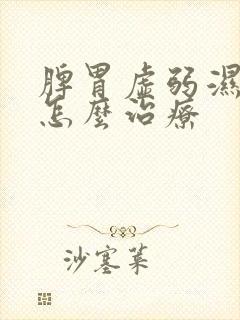 脾胃虛弱濕
怎麼治療
沙塞菜